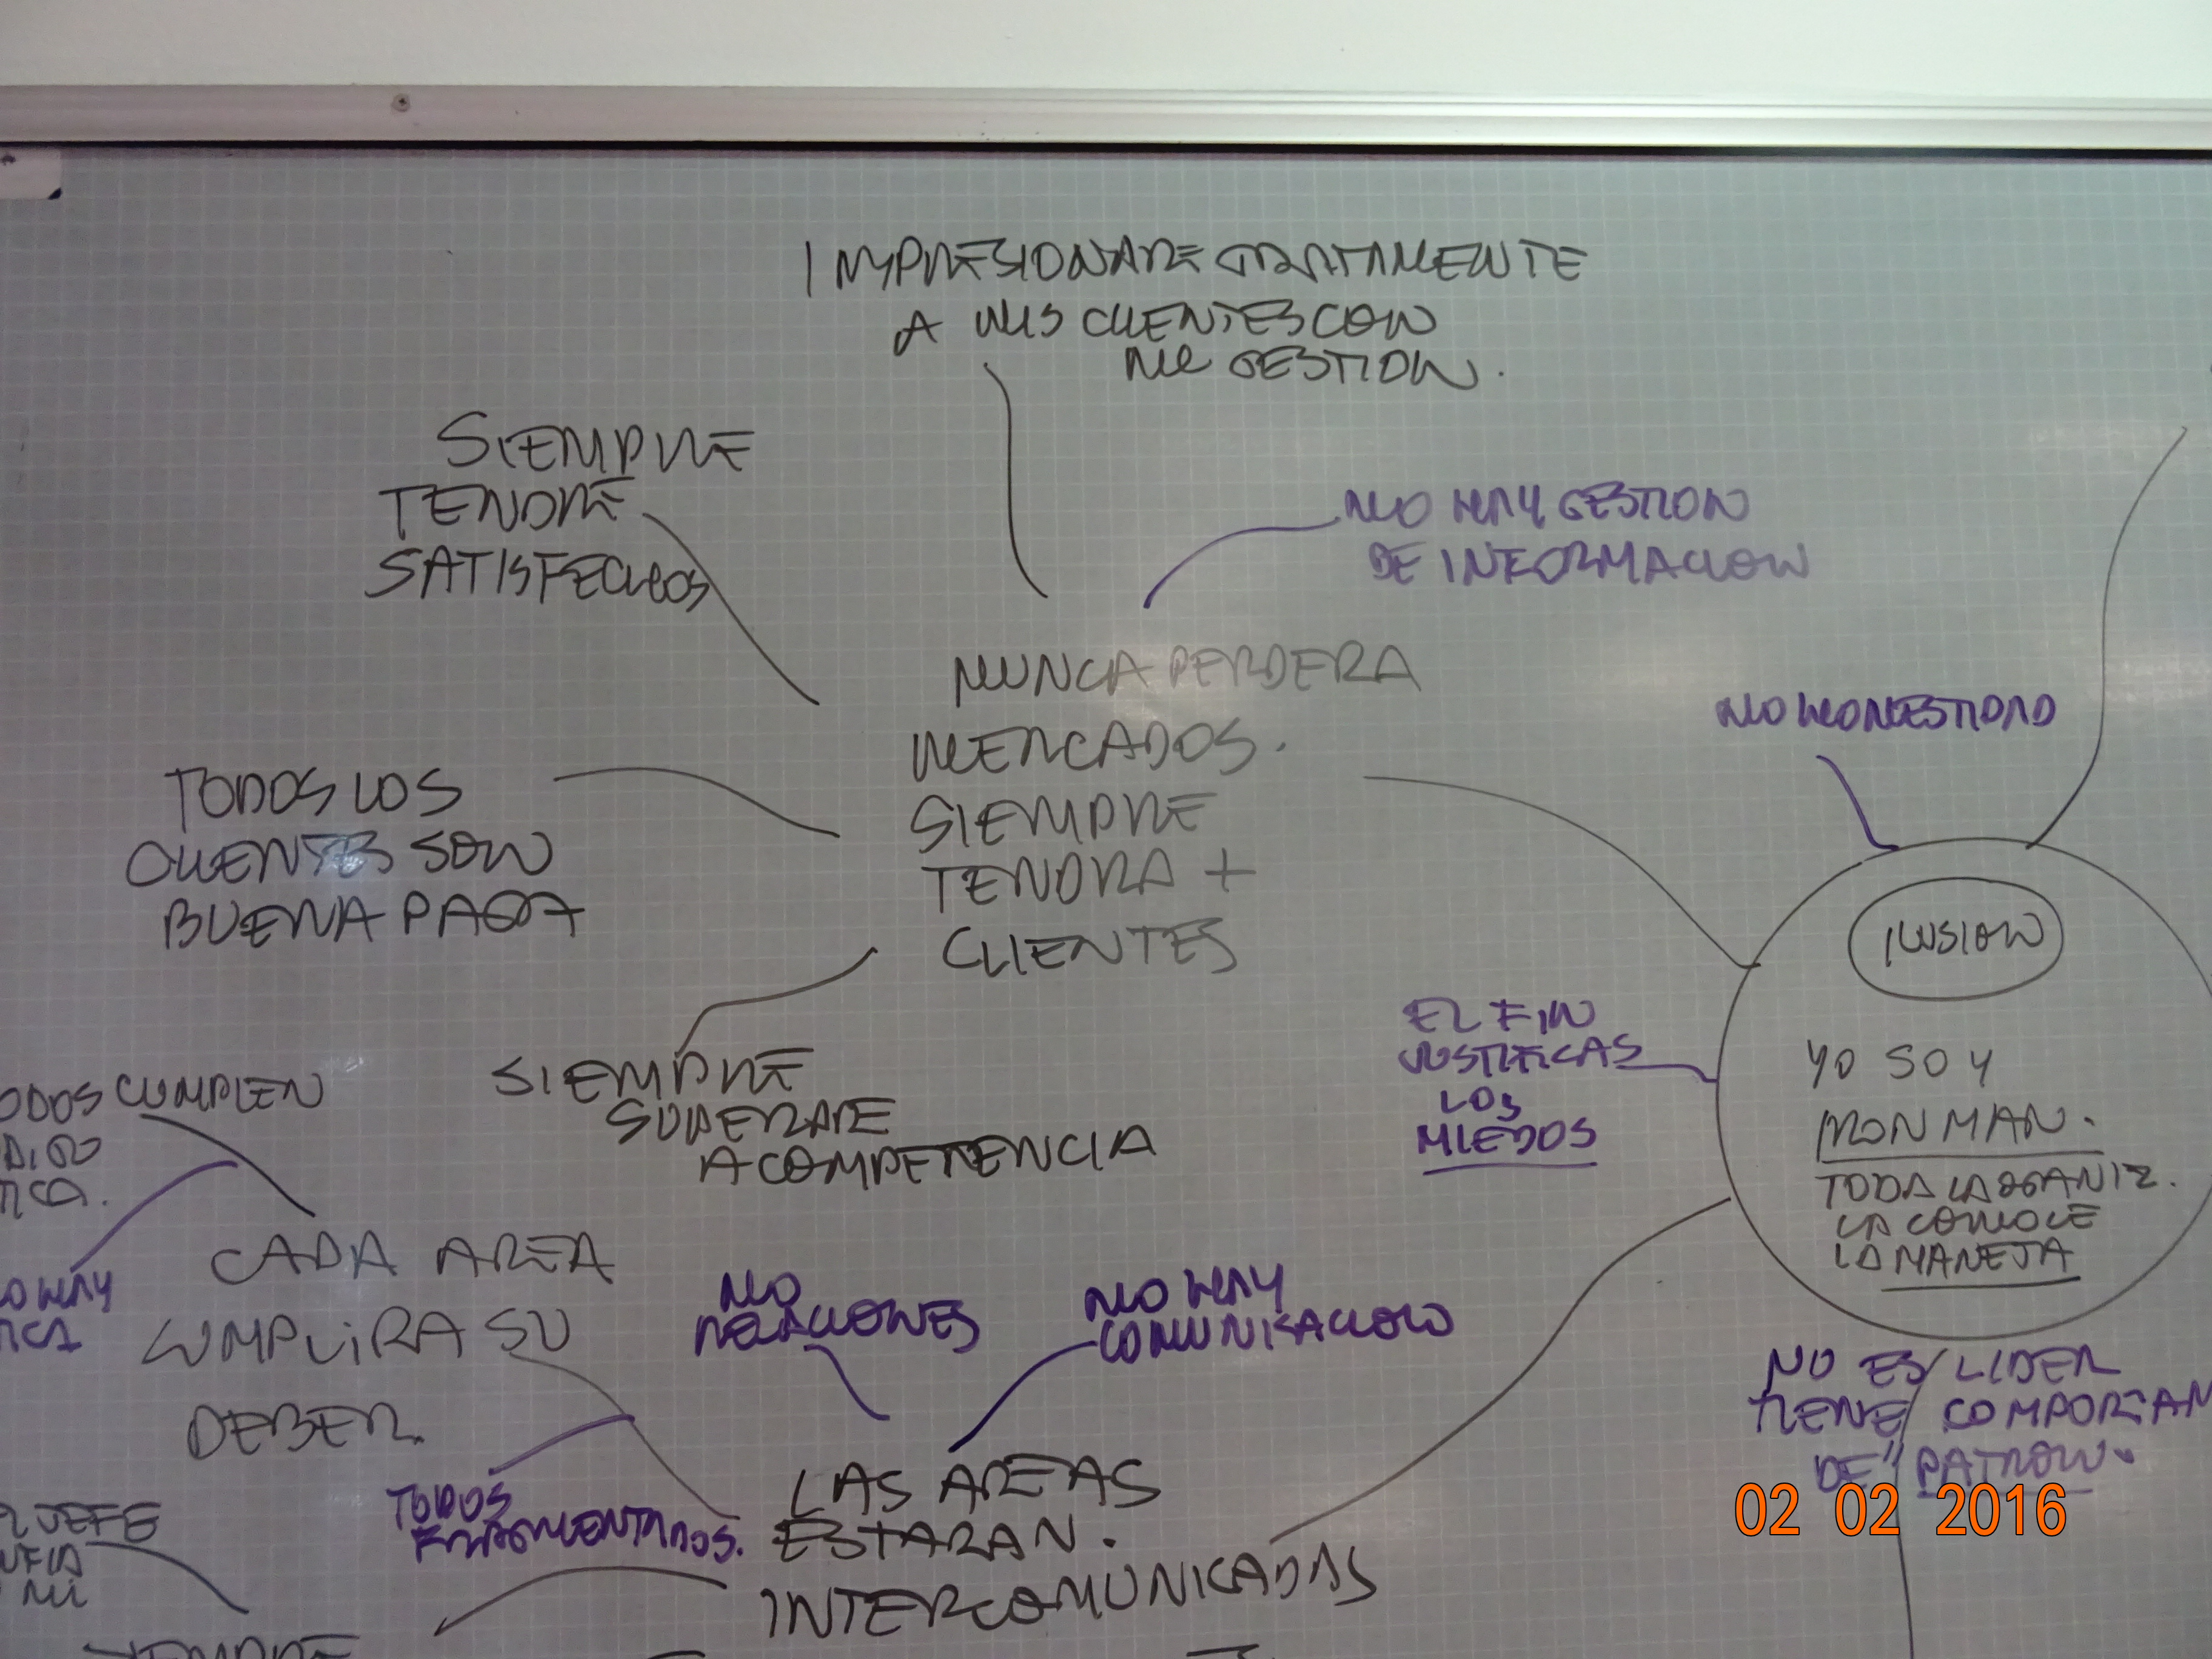 IMPRESIONARE GRATAMENTE
A MIS CLIENTES CON
MI GESTION.
SIEMPRE
TENDRE
SATISFECHOS
NO HAY GESTION
DE INFORMACION
NUNCA PERDERA
MERCADOS.
SIEMPRE
TENDRA +
CLIENTES
NO HONESTIDAD
TODOS LOS
CLIENTES SON
BUENA PAGA
ILUSION
YO SOY
IRON MAN.
TODA LA OGANIZ.
LA CONOCE
LA MANEJA
EL FIN
JUSTIFICAS
LOS
MIEDOS
SIEMPRE
SUPERARE
A COMPETENCIA
ODOS CUMPLEN
DIGO
TICA.
CADA AREA
CUMPLIRA SU
DEBER.
O HAY
TICA
NO
RELACIONES
NO HAY
COMUNICACION
NO ES LIDER
TIENE COMPORTAM
DE "PATRON"
TODOS
FRAGMENTADOS.
LAS AREAS
ESTARAN.
INTERCOMUNICADAS
JEFE
MI
SIEMPRE
02 02 2016